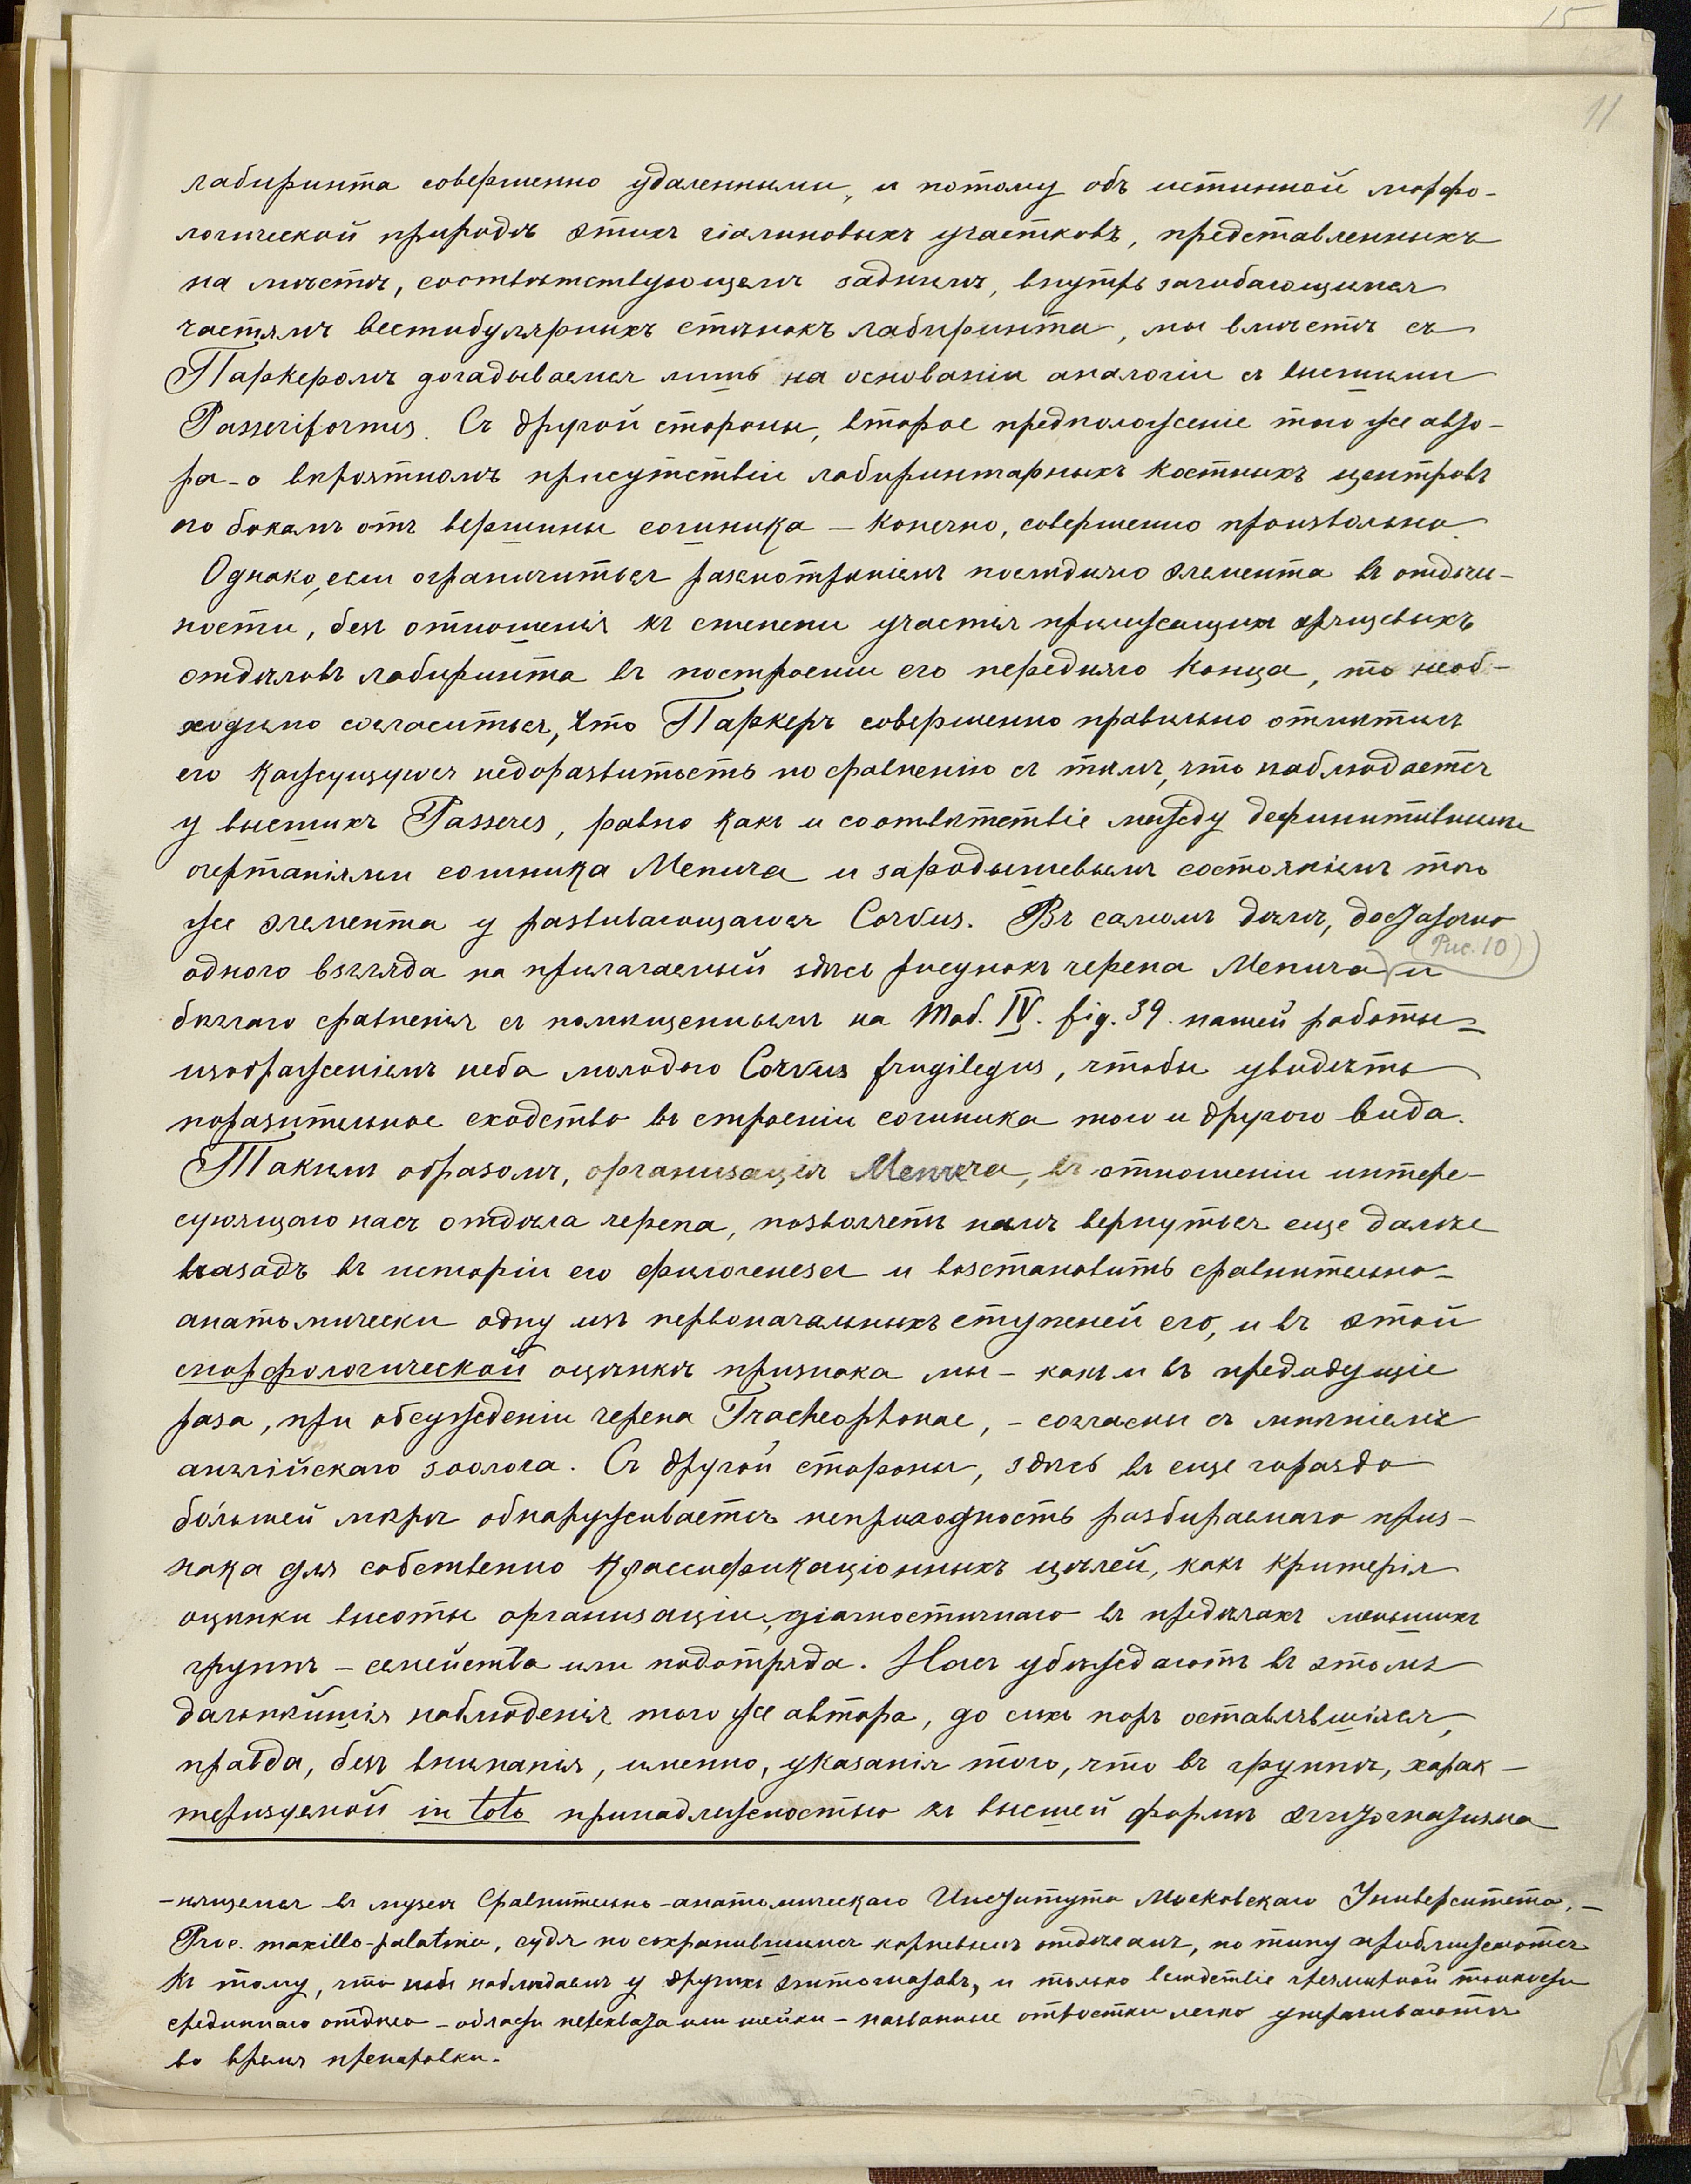 15
11
лабиринта совершенно удаленными, и потому объ истинной морфо-
логической природѣ этихъ гіалиновыхъ участковъ, представленныхъ
на мѣстѣ, соотвѣтствующемъ заднимъ, внутрь загибающимся
частямъ вестибулярныхъ стѣнокъ лабиринта, мы вмѣстѣ съ
Паркеромъ догадываемся лишь на основаніи аналогіи съ высшими
Passeriformes. Съ другой стороны, второе предположеніе того же авто-
ра - о вѣроятномъ присутствіи лабиринтарныхъ костныхъ центровъ
по бокамъ отъ вершины сошника — конечно, совершенно произвольно.
Однако, если ограничиться разсмотрѣніемъ послѣдняго элемента въ отдѣль-
ности, безъ отношенія къ степени участія прилежащихъ хрящевыхъ
отдѣловъ лабиринта въ построеніи его передняго конца, то необ-
ходимо согласиться, что Паркеръ совершенно правильно отмѣтилъ
его кажущуюся недоразвитость по сравненію съ тѣмъ, что наблюдается
у высшихъ Passeres, равно какъ и соотвѣтствіе между дефинитивными
очертаніями сошника Menura и зародышевымъ состояніемъ того
же элемента у развивающагося Corvus. Въ самомъ дѣлѣ, достаточно
одного взгляда на прилагаемый здѣсь рисунокъ черепа Menura (Рис. 10) и
бѣглаго сравненія съ помѣщеннымъ на Таб. IV. fig. 39. нашей работы
изображеніемъ неба молодого Corvus frugilegus, чтобы увидѣть
поразительное сходство въ строеніи сошника того и другого вида.
Такимъ образомъ, организація Menura, въ отношеніи интере-
сующаго насъ отдѣла черепа, позволяетъ намъ вернуться еще далѣе
назадъ въ исторіи его филогенеза и возстановить сравнительно-
анатомически одну изъ первоначальныхъ ступеней его, и въ этой
морфологической оцѣнкѣ признака мы - какъ и въ предыдущіе
раза, при обсужденіи черепа Tracheophonae, - согласны съ мнѣніемъ
англійскаго зоолога. Съ другой стороны, здѣсь въ еще гораздо
бо́льшей мѣрѣ обнаруживается непригодность разбираемаго приз-
нака для собственно классификаціонныхъ цѣлей, какъ критерія
оцѣнки высоты организаціи, діагностичнаго въ предѣлахъ меньшихъ
группъ - семейства или подотряда. Насъ убѣждаютъ въ этомъ
дальнѣйшія наблюденія того же автора, до сихъ поръ оставлявшіяся,
правда, безъ вниманія, именно, указанія того, что въ группѣ, харак-
теризуемой in toto принадлежностью къ высшей формѣ эгитогнатизма
-нящемся въ музеѣ Сравнительно-анатомическаго Института Московскаго Университета, -
Proc. maxillo-palatina, судя по сохранившимся корневымъ отдѣламъ, по типу приближаются
къ тому, что наблюдаемъ у другихъ эгитогнатовъ, и только вслѣдствіе чрезмѣрной тонкости
срединнаго отдѣла - области перехвата или шейки - названные отростки легко утрачиваются
во время препаровки.